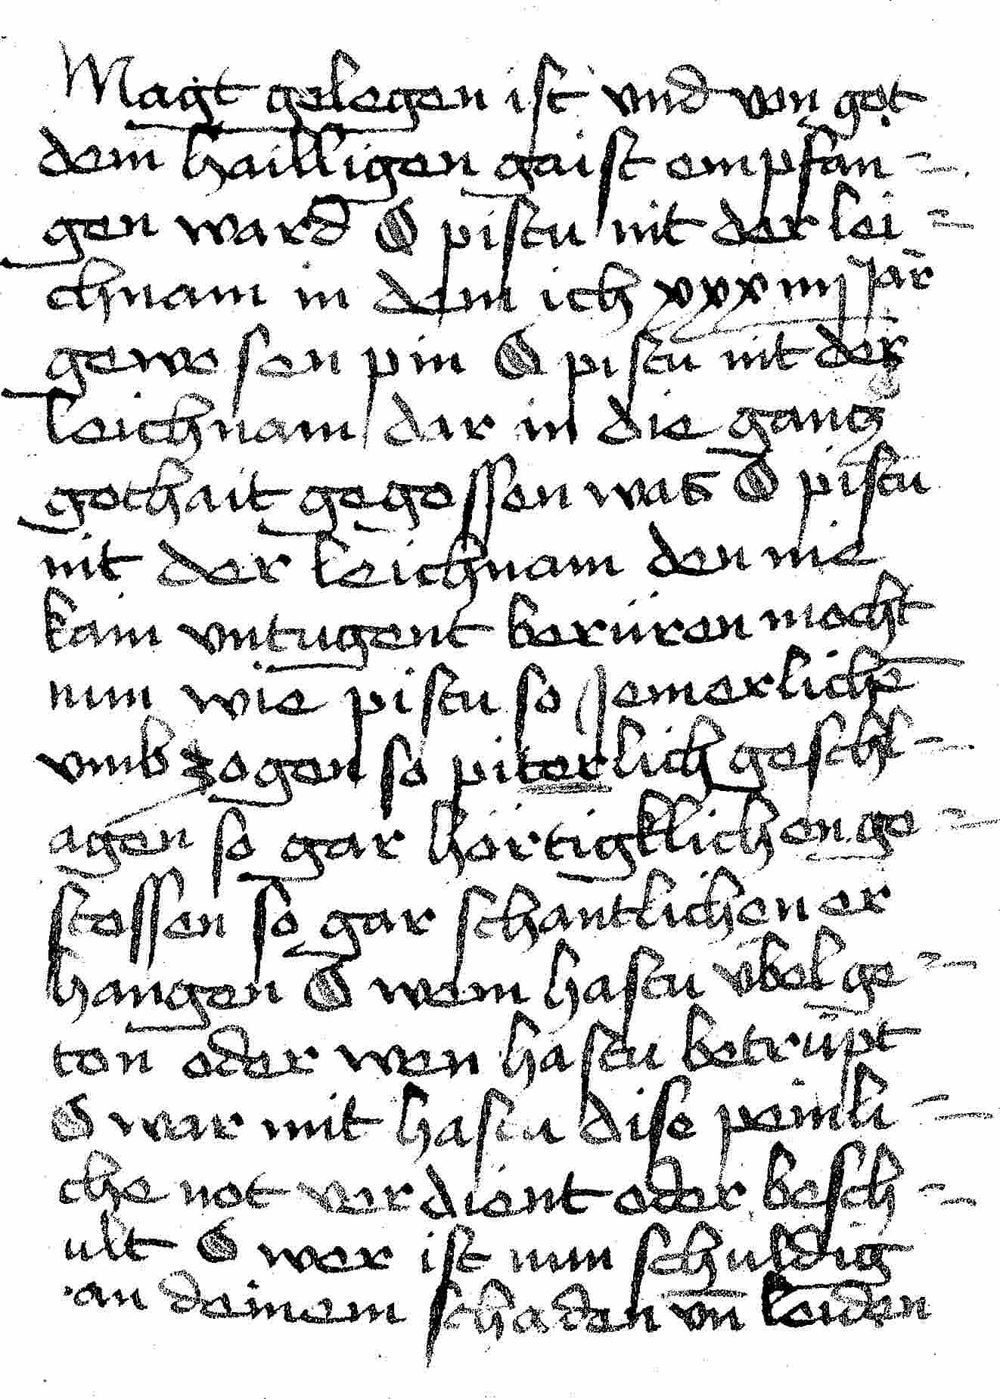 Magt gelegen ist vnd von got
dem hailligen gaist empfan =
gen ward O pistu nit der lei =
chnam in dem ich xxxiiij Jar
gewesen pin O pistu nit der
leichnam dar in die gantz
gothait gegossen was O pistu
nit der leichnam den nie
kain vntugent berüren mocht
nun wie pistu so Jemerliche
vmb zogen so piterlich geschl =
agen so gar hertigklichen ge =
stossen so gar schantlichen er
hangen O wem hastu vbel ge =
ton oder wen hastu betrüpt
O war mit hastu dise peinli =
che not verdient oder besch =
ult O wer ist nun schuldig
an deinem schaden vn leiden